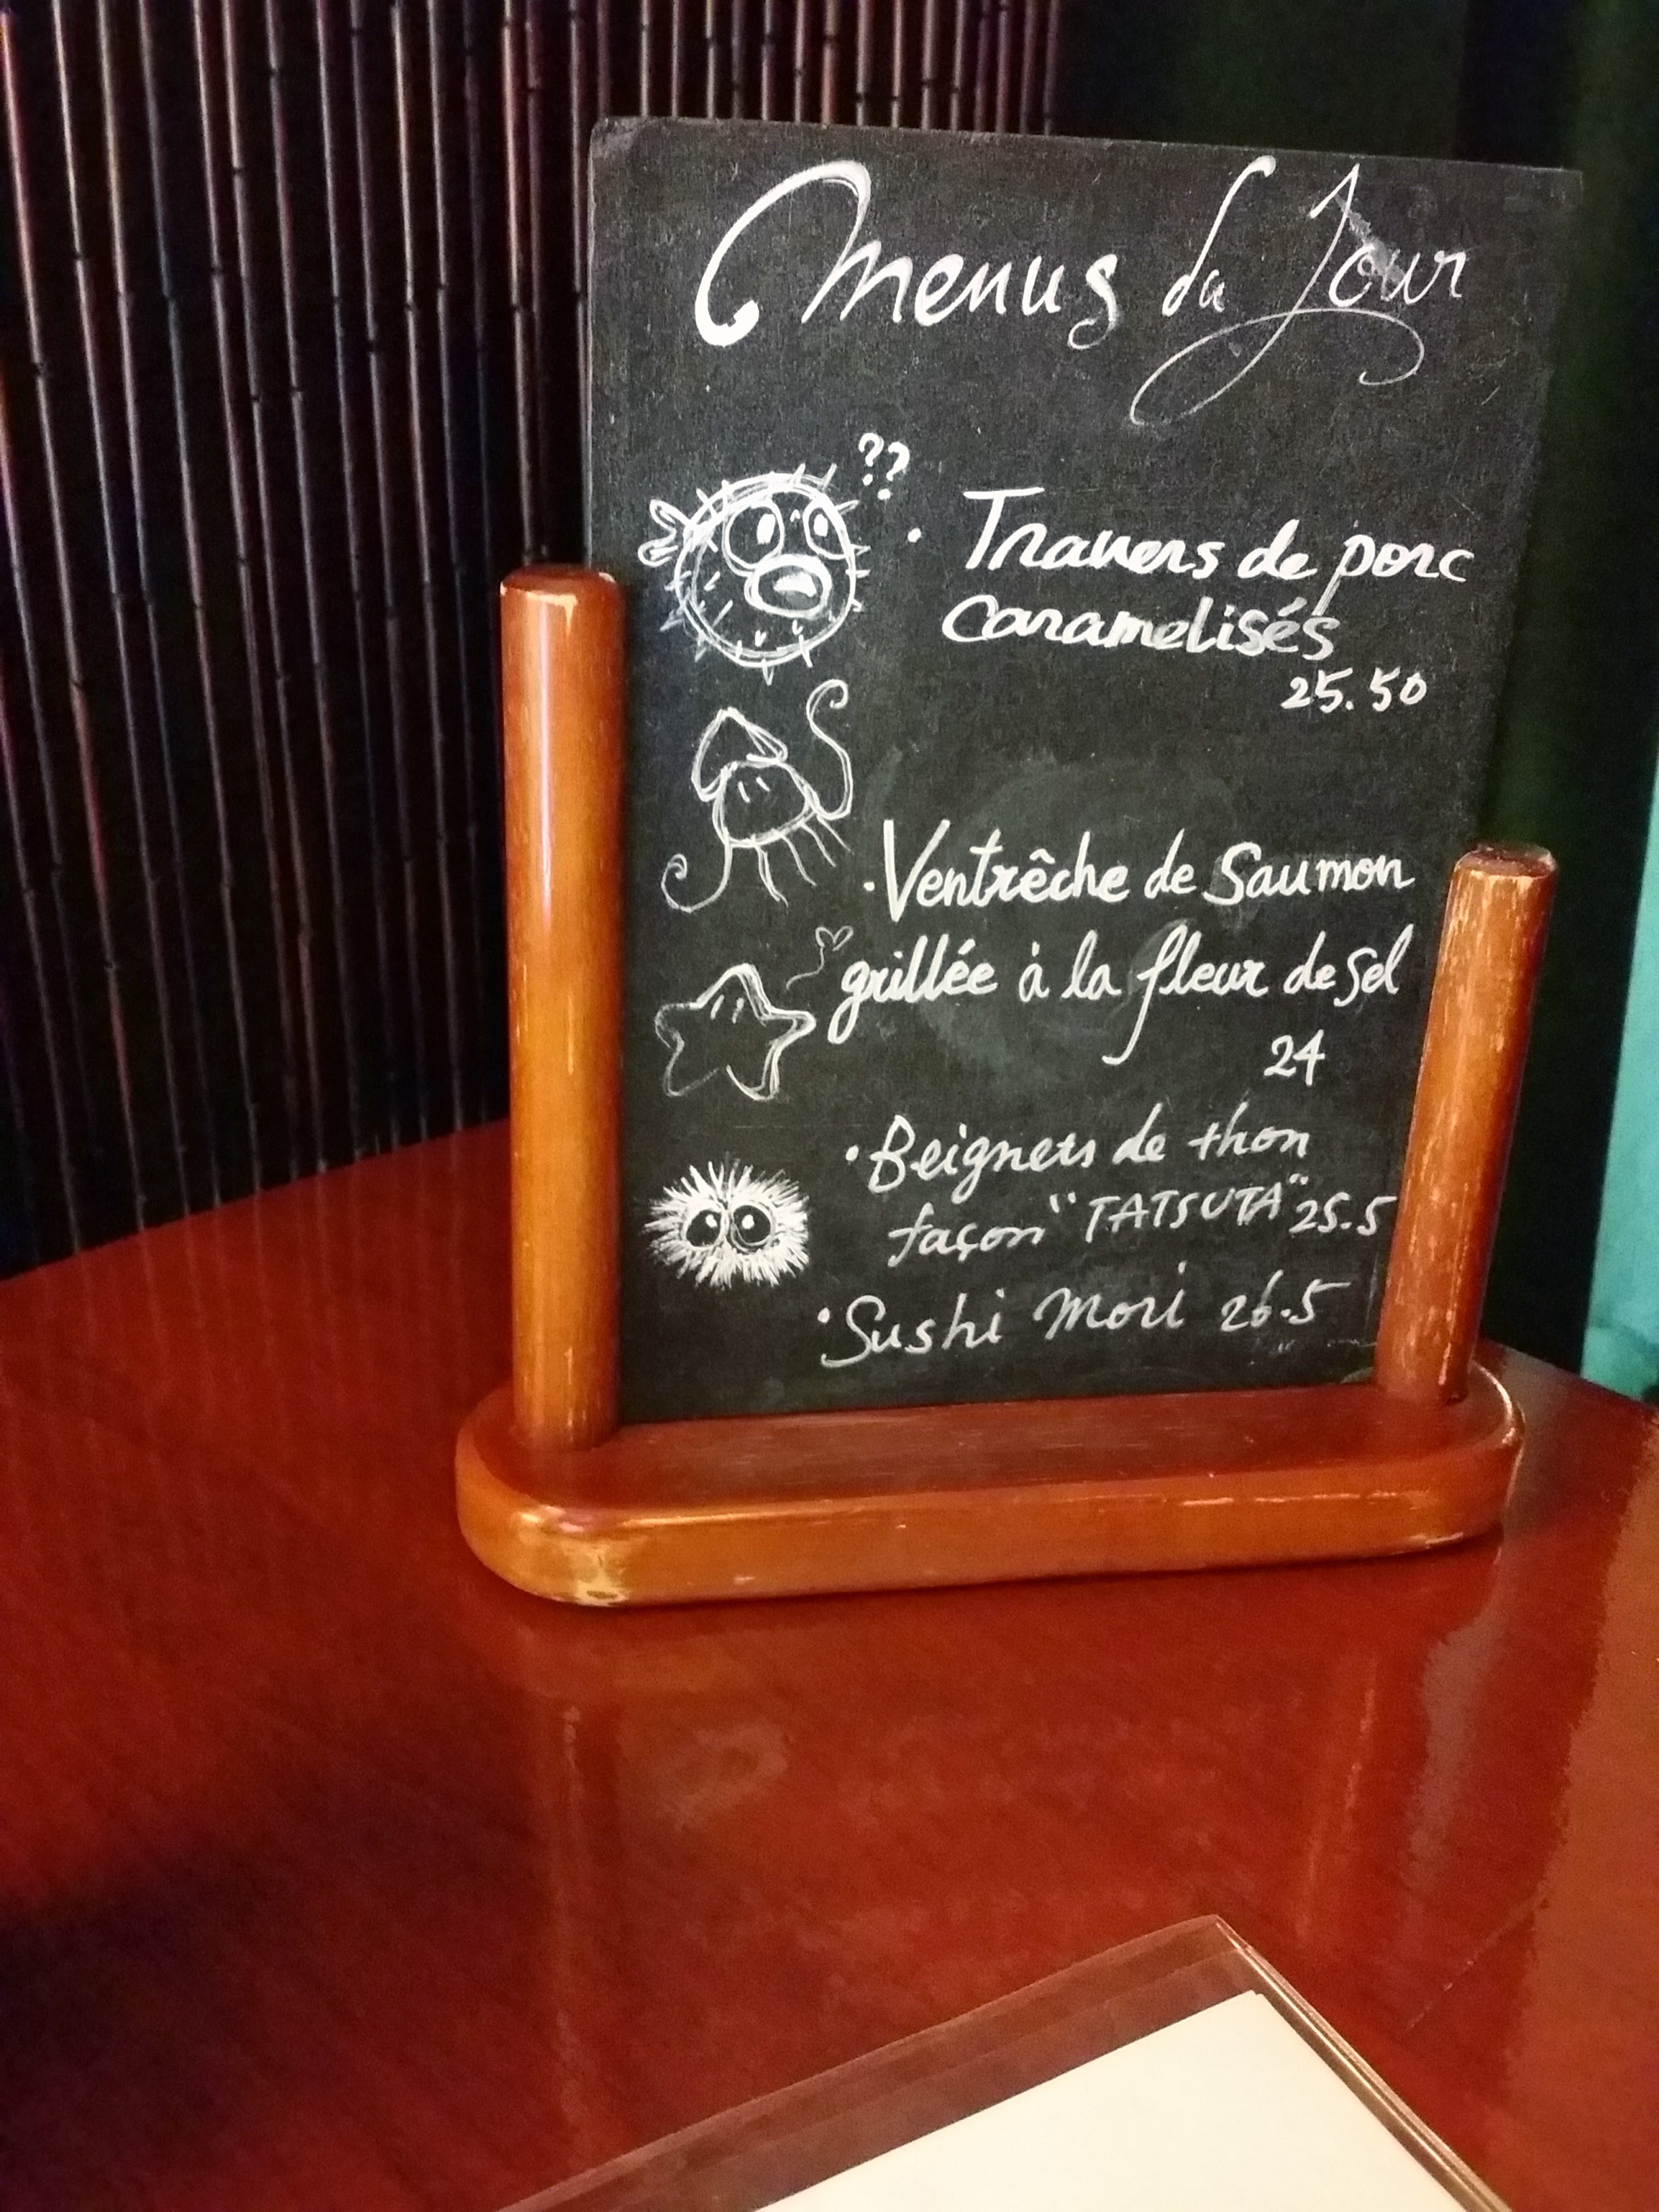 Menus du Jour
??
• Travers de porc
caramelisés
25.50
• Ventrêche de Saumon
grillée à la fleur de sel
24
• Beignets de thon
façon "TATSUTA" 25.5
• Sushi Mori 26.5